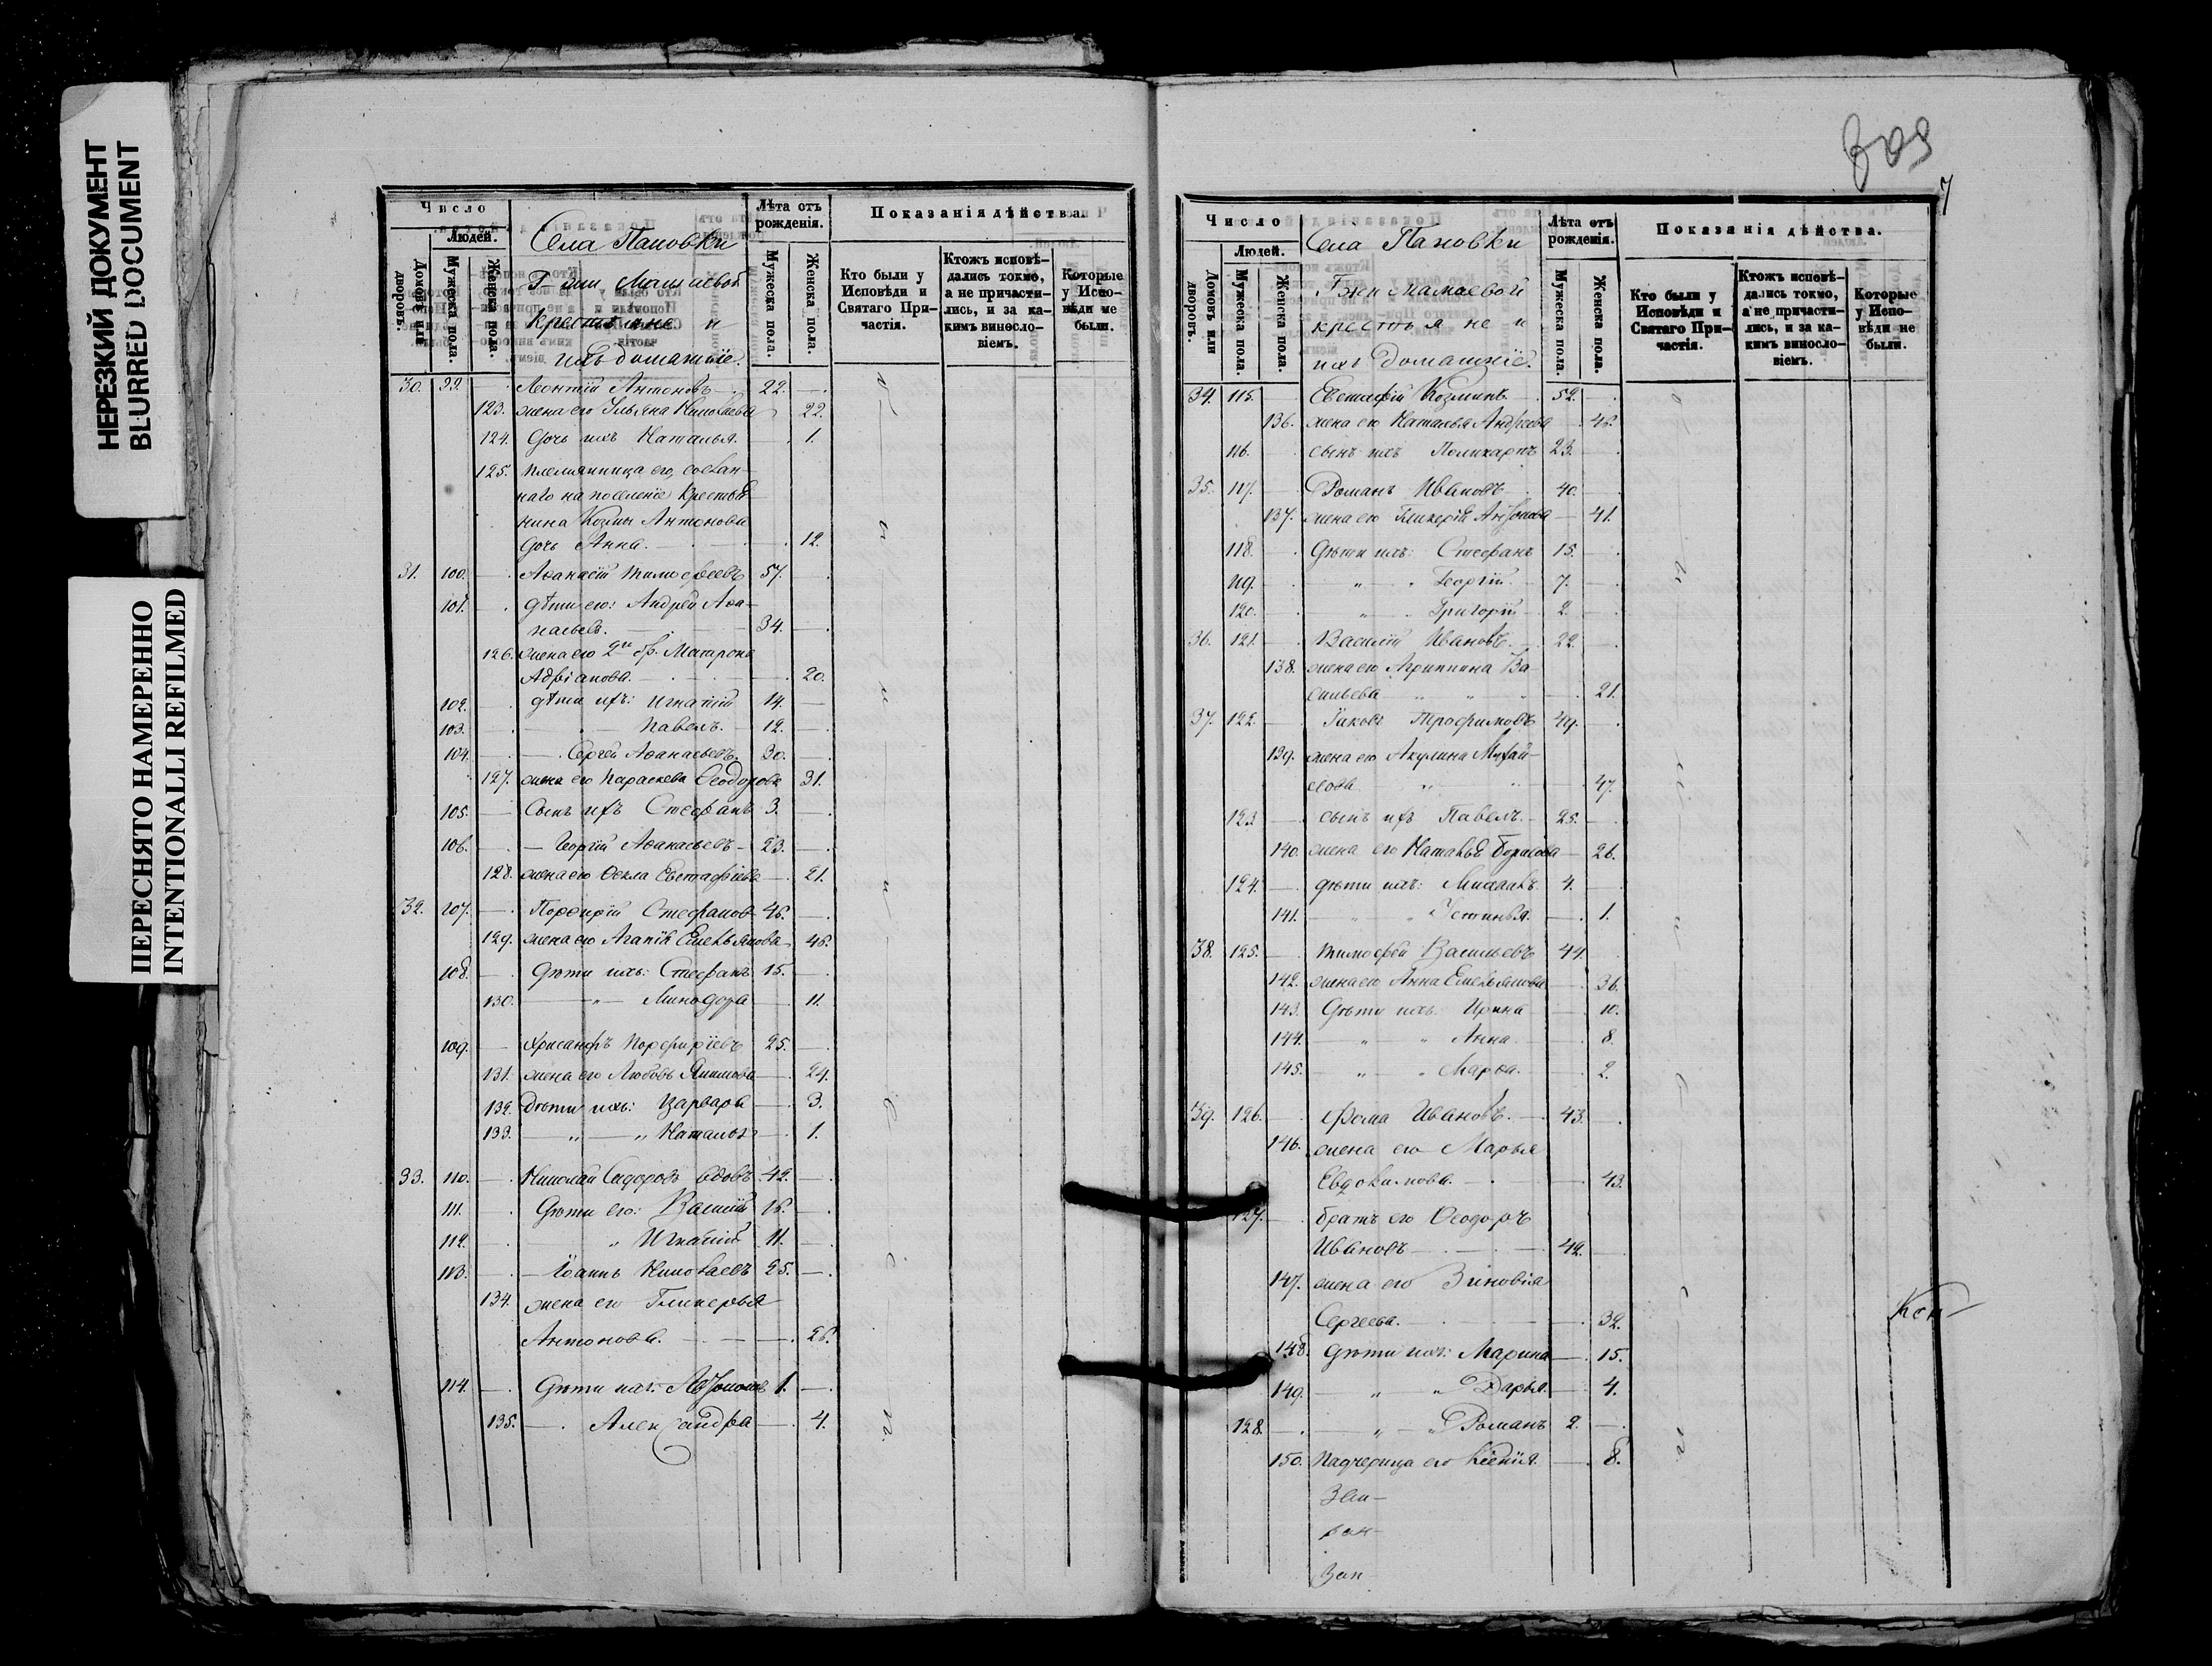 НЕРЕЗКИЙ ДОКУМЕНТ
BLURRED DOCUMENT
ПЕРЕСНЯТО НАМЕРЕННО
INTENTIONALLI REFILMED
Число
Людей.
Домовъ или дворовъ.
Мужеска пола.
Женска пола.
Села Пановки
Г-жи Мамаевой
крестьяне и
ихъ домашніе.
Лѣта отъ рожденія.
Мужеска пола.
Женска пола.
Показанія дѣйства
Кто были у Исповѣди и Святаго Причастія.
Ктожъ исповѣдались токмо, а не причастились, и за какимъ винословіемъ.
Которые у Исповѣди не были.
30. 99. Леонтій Антоновъ 22.
123. жена его Ульяна Николаева 22.
124. дочь ихъ Наталья. 1.
125. племянница его, сослан-
наго на поселеніе крестья
нина Козмы Антонова
дочь Анна. 12.
31. 100. Аѳанасій Тимофеевъ 57.
101. дѣти его: Андрей Аѳа-
насьевъ. 34.
126. жена его 2го бр. Матрона
Адріанова. 20.
102. дѣти ихъ: Игнатій 14.
103. Павелъ. 12.
104. Сергей Аѳанасьевъ. 30.
127. жена его Параскева Ѳеодорова 31.
105. Сынъ ихъ Стефанъ 3.
106. Георгій Аѳанасьевъ 23.
128. жена его Ѳекла Евстафіева 21.
32. 107. Порфирій Стефанов 46.
129. жена его Агапія Емельянова 46.
108. дѣти ихъ: Стефанъ 15.
130. " Минодора 11.
109. Хрисанфъ Порфиріевъ 25.
131. жена его Любовь Якимова 24.
132. Дѣти ихъ: Варвара 3.
133. " " Наталья 1.
33. 110. Николай Сидоровъ вдовъ 42.
111. Дѣти его: Василій 16.
112. " Игнатій 11.
113. Іоаннъ Николаевъ 25.
134. жена его Гликерья
Антонова. 26.
114. Дѣти ихъ: 1.
135. Александра 4.
309
7
Число
Людей.
Домовъ или дворовъ.
Мужеска пола.
Женска пола.
Села Пановки
Гжи Мамаевой
крестьяне и
ихъ домашніе.
Лѣта отъ рожденія.
Мужеска пола.
Женска пола.
Показанія дѣйства.
Кто были у Исповѣди и Святаго Причастія.
Ктожъ исповѣдались токмо, а не причастились, и за какимъ винословіемъ.
Которые у Исповѣди не были.
34. 115. Евстафій Козминъ 52.
136. жена его Наталья Андреева 46.
116. сынъ ихъ Поликарпъ 23.
35. 117. Романъ Ивановъ 40.
137. жена его Гликерія 41.
118. Дѣти ихъ: Стефанъ 15.
119. " " Георгій 7.
120. " " Григорій 2.
36. 121. Василій Ивановъ 22.
138. жена его Агриппина Ва
сильева " " " 21.
37. 122. Іаковъ Трофимовъ 49.
139. жена его Акулина Михай-
лова " " 47.
123 сынъ ихъ Павелъ. 25.
140. жена его Наталья Борисова 26.
124. дѣти ихъ: Михаилъ 4.
141. " " Устинья. 1.
38. 125. Тимофей Васильевъ 44.
142. жена его Анна Емельянова 36.
143. Дѣти ихъ: Ирина 10.
144. " " Анна 8.
145. " " Марѳа. 2.
39. 126. Фома Ивановъ. 43.
146. жена его Марья
Евдокимова. 43.
127. братъ его Ѳеодоръ
Ивановъ 42.
147. жена его Зиновія
Сергеева. 32.
148. Дѣти ихъ: Марина 15.
149. " " Дарья. 4.
128. " " Романъ 2.
150. Падчерица его Ксенія. 8.